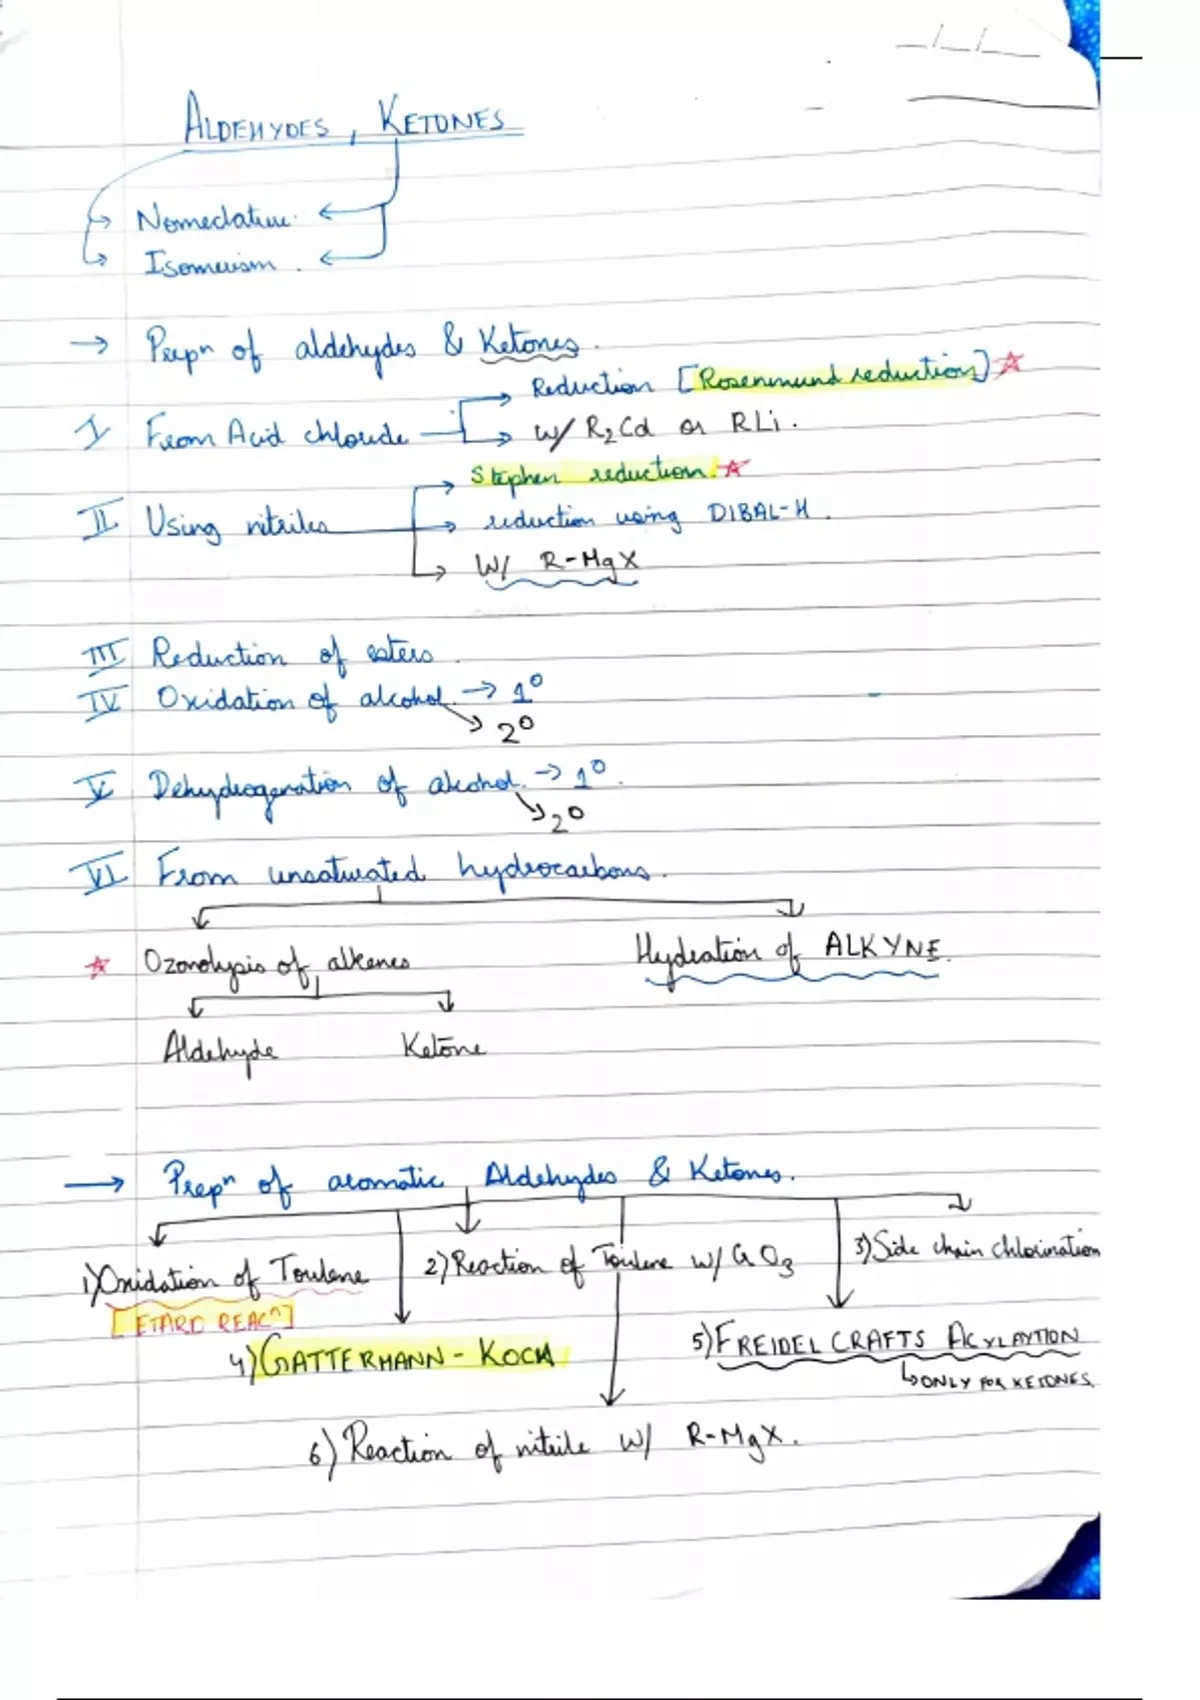 __/__/__
ALDEHYDES, KETONES
Nomeclature.
Isomerism.
→ Prepⁿ of aldehydes & Ketones.
I From Acid chloride → Reduction [Rosenmund reduction] ☆
→ w/ R₂Cd or RLi.
II Using nitriles → Stephen reduction. ☆
→ reduction using DIBAL-H.
→ W/ R-MgX
III Reduction of esters.
IV Oxidation of alcohol. → 1°
→ 2°
V Dehydrogenation of alcohol. → 1°.
→ 2°
VI From unsaturated hydrocarbons.
☆ Ozonolysis of alkenes
Hydration of ALKYNE.
Aldehyde Ketone
→ Prepⁿ of aromatic Aldehydes & Ketones.
1) Oxidation of Toulene
[ETARD REACⁿ]
2) Reaction of Toulene w/ CrO₃
3) Side chain chlorination
4) GATTERMANN - KOCH
5) FREIDEL CRAFTS ACYLAYTION
↳ ONLY FOR KETONES.
6) Reaction of nitrile w/ R-MgX.